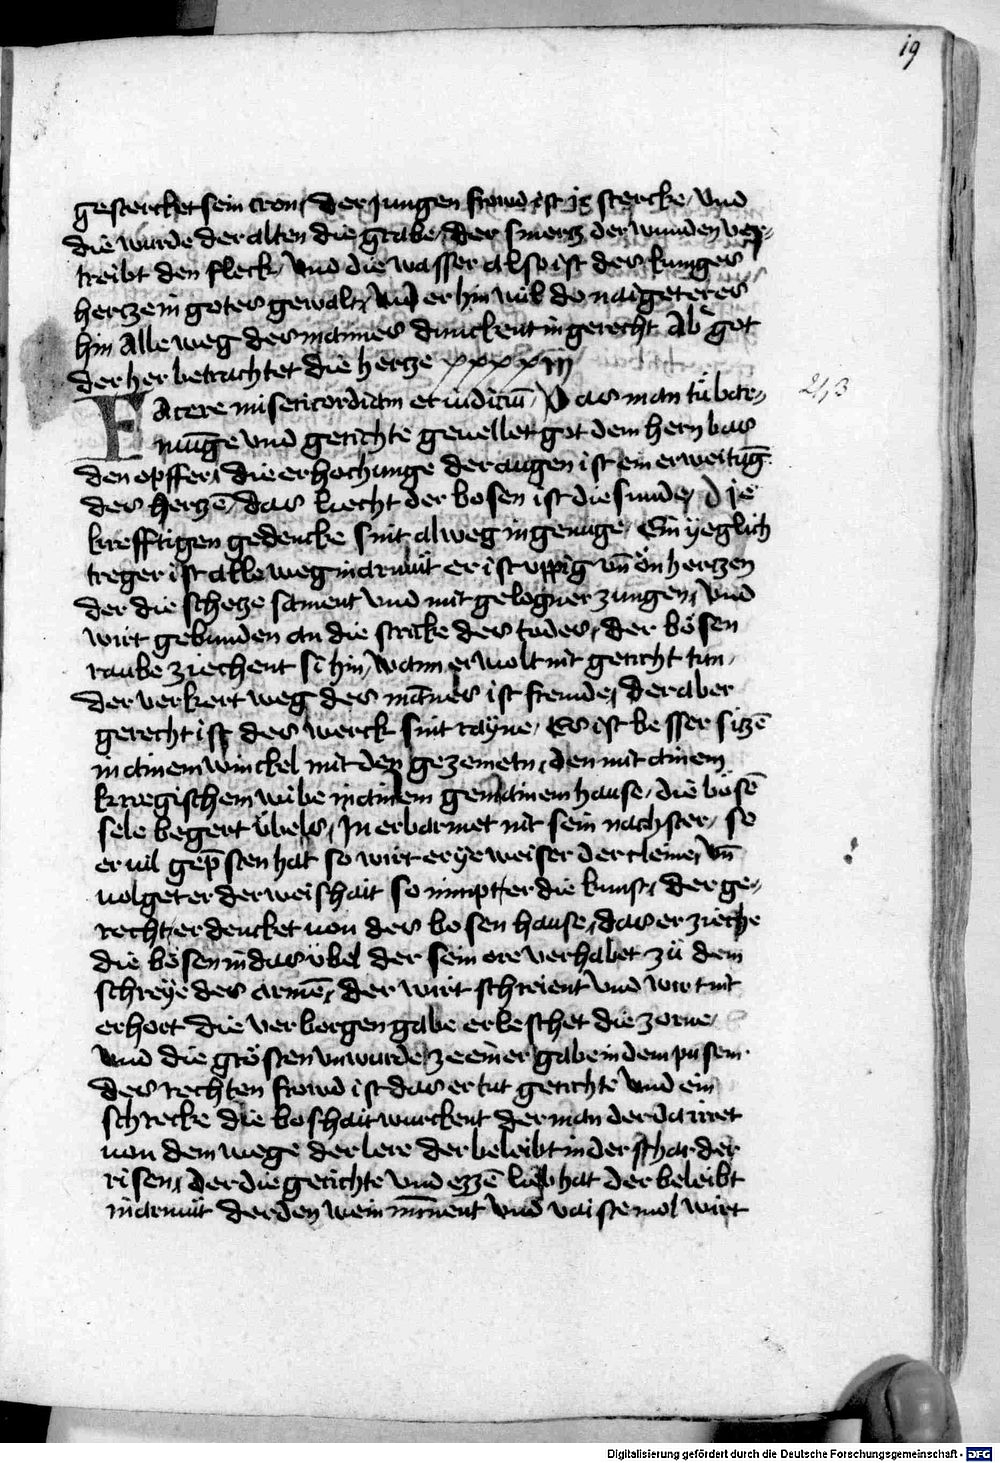 19
gestercket sein cron, der jungen frowd ist ir stercke, und
die wurde der alten die grabe, der smercz der wunden ver-
treibt den fleck, und die wasser also ist des kuniges
hercze in gotes gewalt, und er hin wil do naiget er es
hin Alle weg des mannes dunckent in gerecht Ab̾ got
der her betrachtet die hercze xxxxiij
FAcere misericordiam et iudiciū, Das man tů barm-
nūge und gerichte geuellet got dem hern bas
den opffer, die erhochunge der augen ist ein erweitūg
des herczē, das liecht der bosen ist die sunde, die
krefftigen gedencke sint alweg in genuge, Ein yeglich
treger ist alleweg in armůt er ist uppig vñ ön herczen
der die schecze sament und mit gelogner zungen, und
wirt gebunden an die stricke des todes, der bösen
raube ziechent si hin, wann er wolt nit gericht tun,
der verkert weg des mānes ist fremde, der aber
gerecht ist des werck sint rayne, Es ist besser siczē
in ainem winckel mit den gezemetn, den mit ainem
kriegischem wibe in ainem gemainem hause, die bösē
sele begert übels, In erbarmet nit sein nachster, so
er uil gep̄sten hat so wirt er ye weiser der cleine, vñ
uolget er der weishait so nimpt er die kunst, der ge-
recht, er dencket uon des bosen hause, das er zieche
die bösen in das übel der sein ore verhabet zů dem
schreye des armē, der wirt schreient und wirt nit
erhort die verborgen gabe erleschet die zorne,
und die grösten unwurde, ze einer gabe in dem pusem
des rechten frowd ist das er tut gerichte und ein
schrecke die boshait wurckent der man der da irret
uon dem wege der lere der beleibt in der schar der
risen, der die gerichte und ezzē liep hat der beleibt
in armůt der den wein mīnent und vaistemol wirt
213
Digitalisierung gefördert durch die Deutsche Forschungsgemeinschaft - DFG